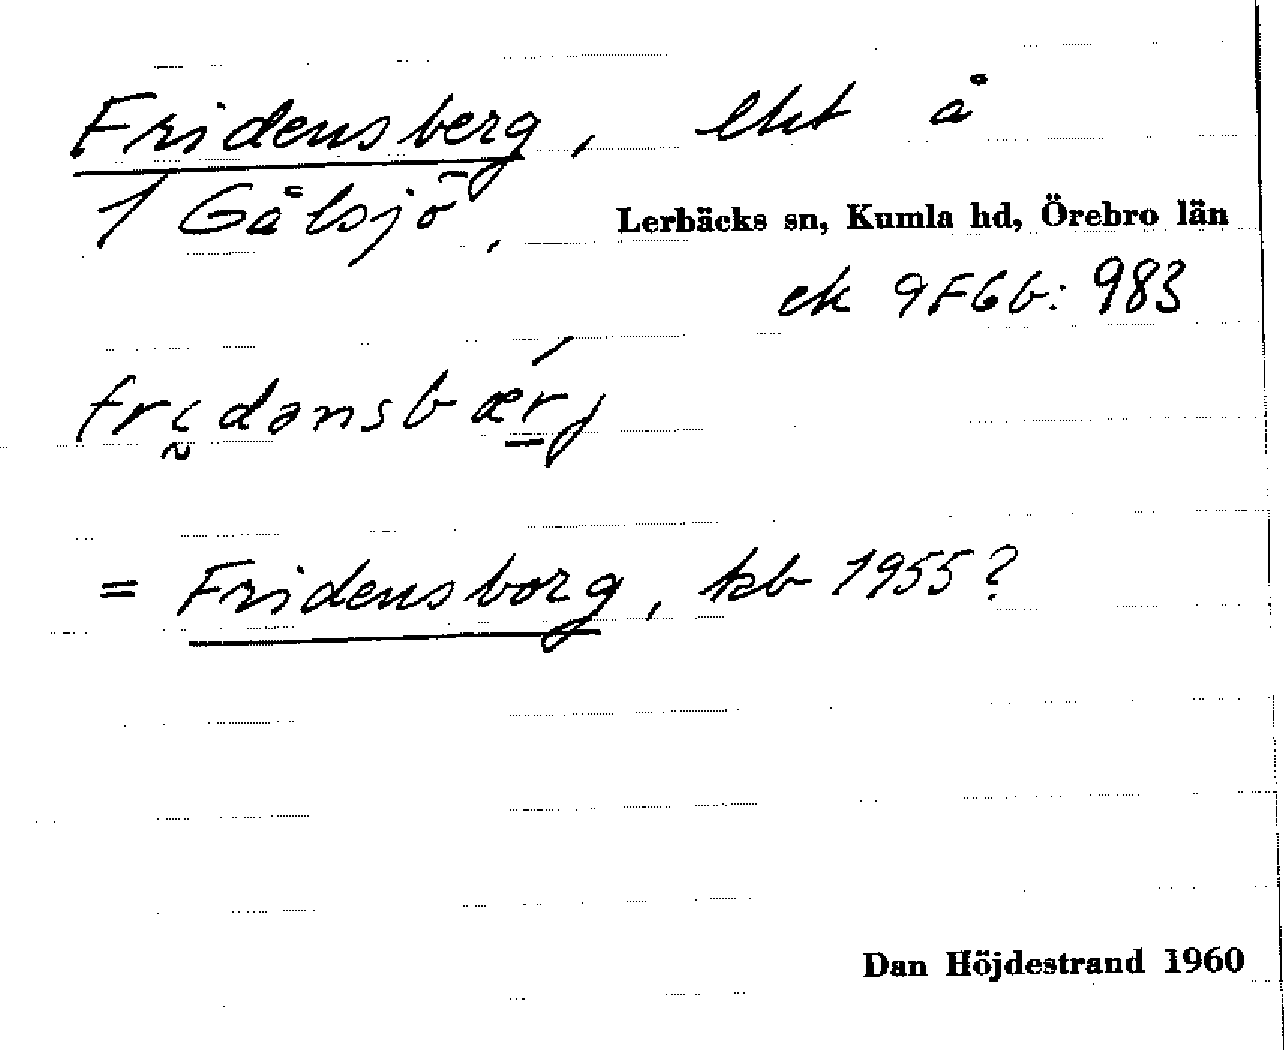 Fridensberg, lht å
1 Gålsjö,
Lerbäcks sn, Kumla hd, Örebro län
ek 9F6b: 983
fridənsbærj
= Fridensborg, kb 1955?
Dan Höjdestrand 1960